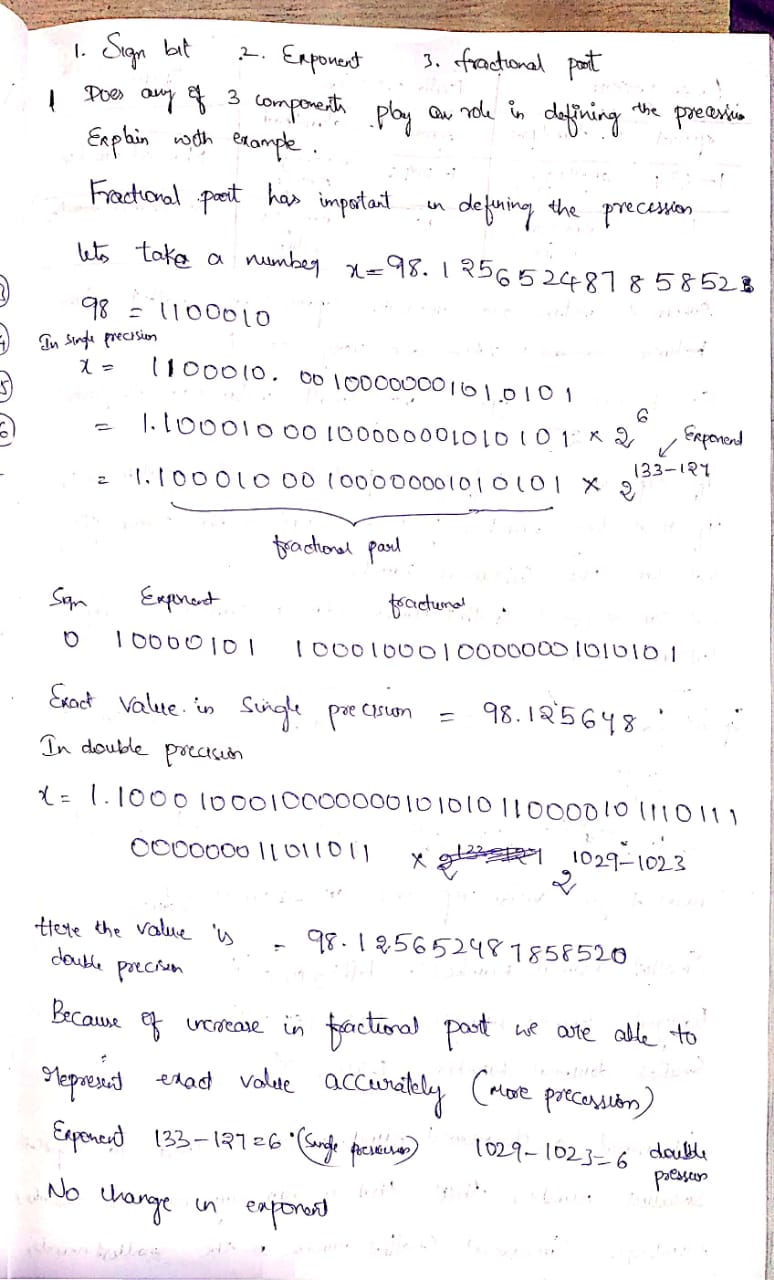 1. Sign bit 2. Exponent 3. fractional part
1 Does any of 3 components play an role in defining the precession
Explain with example.
Fractional part has important in defining the precession
lets take a number x=98.12565248785852
98 = 1100010
In single precision
x = 1100010.00100000001010101
= 1.10001000100000001010101 × 2^6 Exponent
= 1.10001000100000001010101 × 2^133-127
fractional part
Sign Exponent fractional
0 10000101 10001000100000001010101
Exact value in single precision = 98.125648
In double precision
x = 1.10001000100000000101010110000101110111
000000011011011 × 2^1029-1023
Here the value is = 98.125652487858520
double precisen
Because of increase in fractional part we are able to
represent exact value accurately (More precession)
Exponent 133-127=6 (Single precision) 1029-1023=6 double
No change in exponent